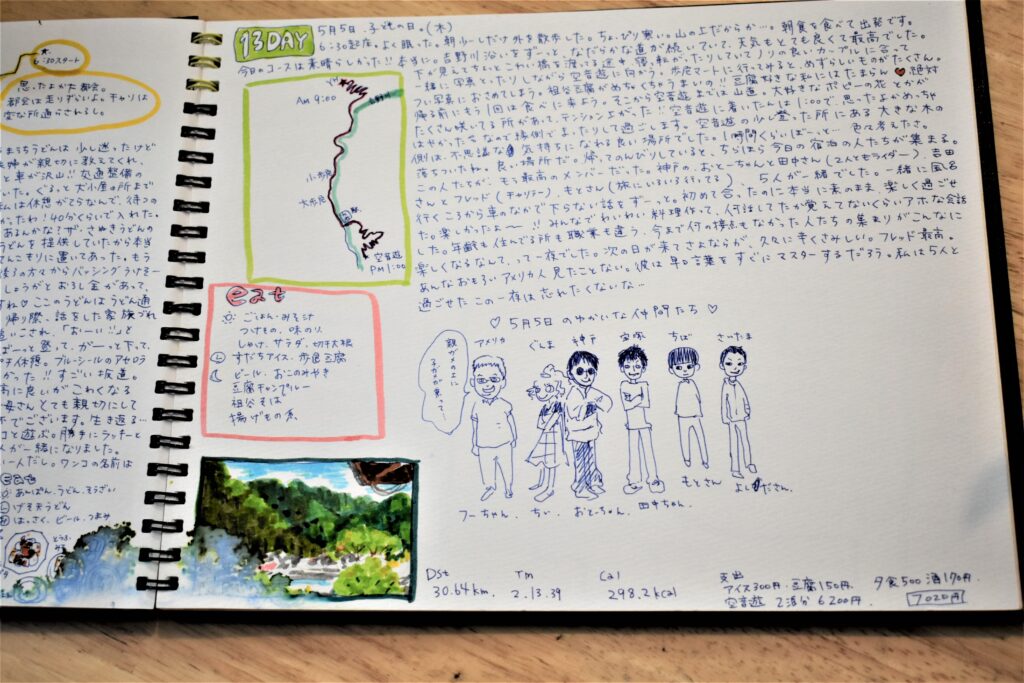 思ったよか大都会。
都会は走りずらいよ。チャリは
まちうどんは少し迷ったけど
婦が親切に教えてくれ、
と車が沢山!!交通整備の
いた。ぐるっと犬小屋の所まで
私は休憩がてらなんで、待つの
かったわ!40分くらいで入れた。
あるんかな?ザ・さぬきうどんの
うどんを提供していたから本当
てんこもりに置いてあった。もう
しょうがとおろし金があって、
ここのうどんはうどん通
帰り際、話をした家族づれ
追いこされ、「おーい!!」と
ぼーっと登って、がーっと下って、
チ休憩。ブルーシールのアセロラ
かった!!すごい坂道。
に良いがこわくなる
母さんとても親切にして
でございます。生き返る…
コと遊ぶ。勝手にラッキーと
人が一緒になりました。
い一人だし。ワンコの名前は
eat
あんぱん、うどん、そうざい
げそ天うどん
はっさく、ビール、つまみ
13DAY
5月5日、子供の日。(木)
6:30起床。よく眠った。朝少しだけ外を散歩した。ちょっぴり寒い。山の上だからか…。朝食を食べて出発です。
今日のコースは素晴らしかった!!本当に。吉野川沿いをずーっと、なだらかな道が続いていて、天気もとても良くて最高でした。
下が見えちゃうとこわい橋を渡る途中、寝転がったりしていてノリの良いカップルに会って
一緒に写真をとったりしながら空音遊に向かう。歩危マートに行ってみると、めずらしいものがたくさん。
つい写真におさめてしまう。祖谷豆腐がめちゃくちゃうまいの!豆腐好きな私にはたまらん♥絶対
帰る前にもう1回は食べに来よう。そこから空音遊までは山道。大好きなポピーの花とかが
たくさん咲いてる所があって、テンション上がった!!空音遊に着いたんは1:00で、思ったよかめっちゃ
はやかったなので縁側でまったりして過ごします。空音遊の少し登った所にある大きな木の
側は、不思議な気持ちになれる良い場所でした。1時間くらいぼーっと…色々考えたさ。
落ちついたね。良い場所だ。帰ってのんびりしていると、ちらほら今日の宿泊の人たちが集まる。
この人たちが、もう最高のメンバーだった。神戸の、おとーちゃんと田中さん(2人ともライダー)、吉田
さんとフレッド(チャリダー)、もとさん(旅にいろいろ行ってる) 5人が一緒でした。一緒に風呂
行くころから車のなかで下らない話をずーっと。初めて会ったのに本当に素のまま、楽しく過ごせ
た。楽しかったよー!!みんなでわいわい料理作って、何話してたか覚えてないくらいアホな会話
した。年齢も住んでる所も職業も違う、今まで何の接点もなかった人たちの集まりがこんなに
楽しくなるなんて、って一夜でした。次の日が来てさよならが、久々に辛くさみしい。フレッド最高。
あんなおもろいアメリカ人見たことない。彼は早口言葉をすぐにマスターするだろう。私は5人と
過ごせたこの一夜は忘れたくないな…
Am 9:00
吉野川
小歩危
大歩危
空音遊
PM 1:00
eat
ごはん・みそ汁
つけもの、味のり
しゃけ、サラダ、切干大根
すだちアイス・歩危豆腐
ビール、おこのみやき
豆腐チャンプルー
祖谷そば
揚げもの系
♡5月5日のゆかいな仲間たち♡
親がめの上に
子がめが乗って、
アメリカ
ぐんま
神戸
宝塚
ちば
さいたま
フーちゃん、
ちぃ、
おとーちゃん、
田中ちゃん、
もとさん
よしださん。
Dst
30.64km.
Tm
2.13.39
Cal
298.2kcal
支出
アイス300円・豆腐150円、夕食500 酒190円、
空音遊 2泊分 6200円、